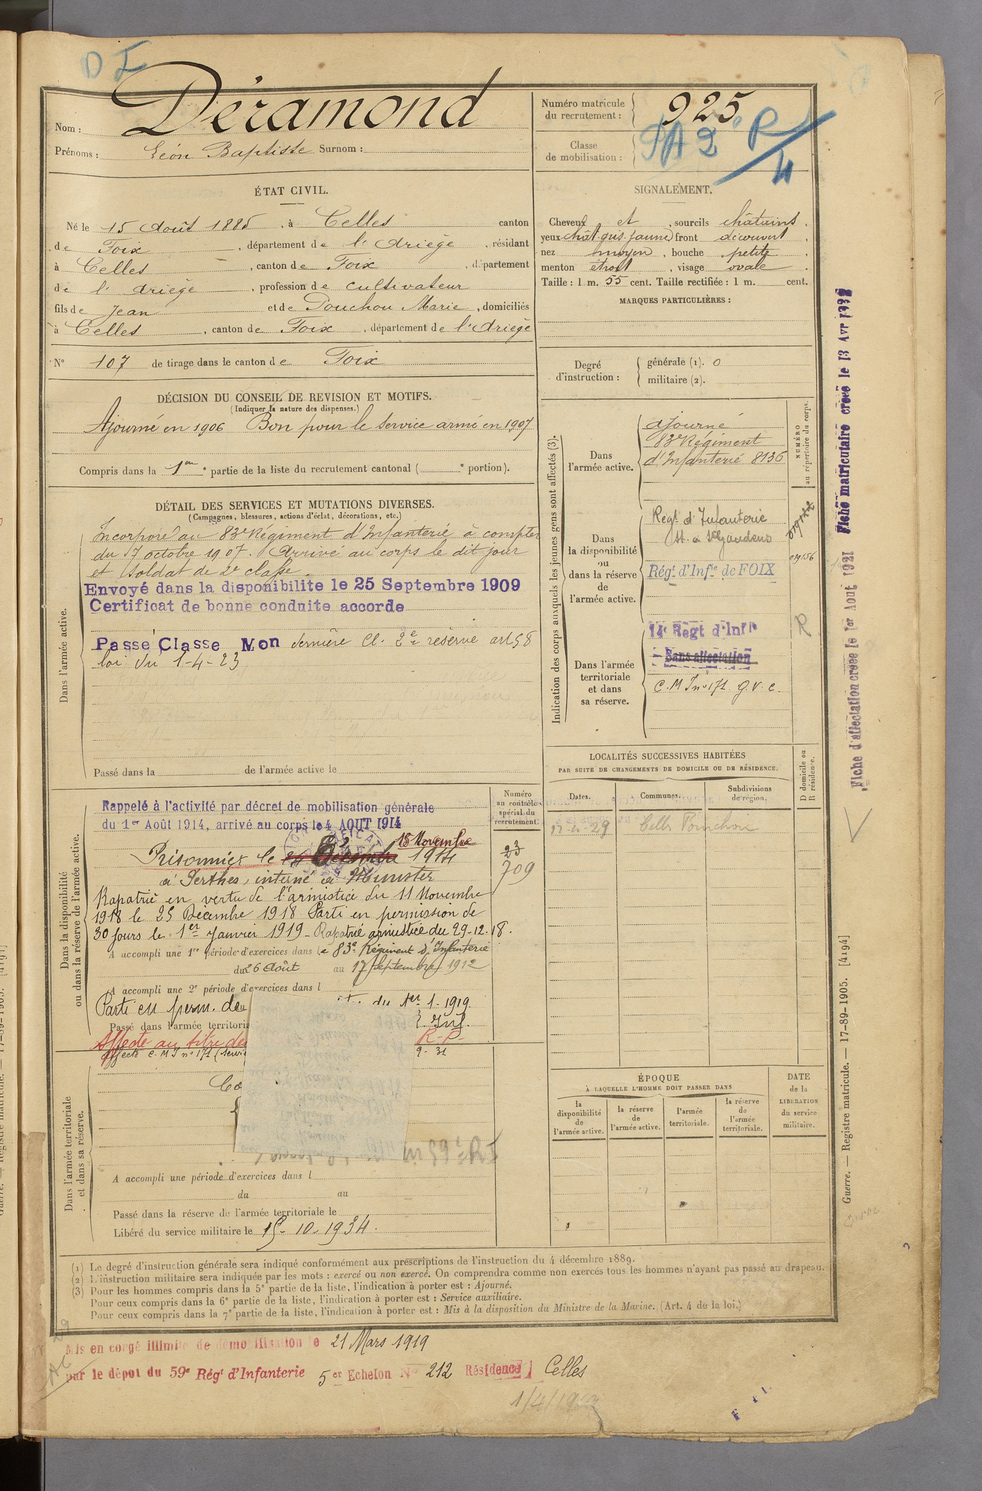 D F
Déramond
Nom :
Prénoms : Léon Baptiste Surnom :
Numéro matricule du recrutement : 925
Classe de mobilisation :
ÉTAT CIVIL.
Né le 15 Août 1885, à Celles canton
de Foix, département de l'Ariège, résidant
à Celles, canton de Foix, département
de l'Ariège, profession de cultivateur
fils de Jean et de Pouchou Marie, domiciliés
à Celles, canton de Foix, département de l'Ariège
N° 107 de tirage dans le canton de Foix
DÉCISION DU CONSEIL DE REVISION ET MOTIFS.
(Indiquer la nature des dispenses.)
Ajourné en 1906 Bon pour le service armé en 1907
Compris dans la 1re partie de la liste du recrutement cantonal ( e portion).
DÉTAIL DES SERVICES ET MUTATIONS DIVERSES.
(Campagnes, blessures, actions d'éclat, décorations, etc.)
Dans l'armée active.
Incorporé au 83e Régiment d'Infanterie à compter
du 7 octobre 1907. Arrivé au corps le dit jour
et soldat de 2e classe.
Envoyé dans la disponibilite le 25 Septembre 1909
Certificat de bonne conduite accorde
Passé Classe Mon dernière Cl. 2e réserve art 58
loi du 1-4-23
Passé dans la de l'armée active le
Dans la disponibilité ou dans la réserve de l'armée active.
Numéro au contrôle spécial du recrutement.
Rappelé à l'activité par décret de mobilisation générale
du 1er Août 1914, arrivé au corps le 4 AOUT 1914
18 Novembre
Prisonnier le 1914
à Perthes, interné à Munster
23
709
Rapatrié en vertu de l'armistice du 11 Novembre
1918 le 25 Décembre 1918 Parti en permission de
30 jours le 1er Janvier 1919 - Rapatrié armistice du 29-12-18.
A accompli une 1re période d'exercices dans le 83e Régiment d'Infanterie
du 26 Août au 17 Septembre 1912
A accompli une 2e période d'exercices dans l
Parti en perm. de 1-1919
Passé dans l'armée territori Inf.
Affecté au titre de R-P-
affecté C.M I n° 171 9-31
Dans l'armée territoriale et dans sa réserve.
A accompli une période d'exercices dans l
du au
Passé dans la réserve de l'armée territoriale le
Libéré du service militaire le 15-10-1934.
SIGNALEMENT.
Cheveux et, sourcils châtains,
yeux chât. gris jaune, front découvert
nez moyen, bouche petite,
menton étroit, visage ovale.
Taille : 1 m. 55 cent. Taille rectifiée : 1 m. cent.
MARQUES PARTICULIÈRES :
Degré d'instruction :
générale (1). 0
militaire (2).
Indication des corps auxquels les jeunes gens sont affectés (3).
NUMÉRO au répertoire du corps.
Dans l'armée active.
ajourné
83e Régiment
d'Infanterie 8136
Dans la disponibilité ou dans la réserve de l'armée active.
Regt d'Infanterie
St Gaudens
Rég. d'Infie de FOIX
Dans l'armée territoriale et dans sa réserve.
14e Regt d'Infie
Sans affectation
C.M I n° 171 G.V.C.
R
LOCALITÉS SUCCESSIVES HABITÉES
PAR SUITE DE CHANGEMENTS DE DOMICILE OU DE RÉSIDENCE.
Dates. Communes. Subdivisions de région. D domicile ou R résidence.
Celles
ÉPOQUE
À LAQUELLE L'HOMME DOIT PASSER DANS
la disponibilité de l'armée active.
la réserve de l'armée active.
l'armée territoriale.
la réserve de l'armée territoriale.
DATE de la LIBÉRATION du service militaire.
Fiche d'affectation créée le 1er Aout 1921 Fiche matriculaire créée le 13 Avr
Guerre. — Registre matricule. — 17-89-1905. [4194]
(1) Le degré d'instruction générale sera indiqué conformément aux prescriptions de l'instruction du 4 décembre 1889.
(2) L'instruction militaire sera indiquée par les mots : exercé ou non exercé. On comprendra comme non exercés tous les hommes n'ayant pas passé au drapeau.
(3) Pour les hommes compris dans la 5e partie de la liste, l'indication à porter est : Ajourné.
Pour ceux compris dans la 6e partie de la liste, l'indication à porter est : Service auxiliaire.
Pour ceux compris dans la 7e partie de la liste, l'indication à porter est : Mis à la disposition du Ministre de la Marine. (Art. 4 de la loi.)
Mis en congé illimité de démobilisation le 21 Mars 1919
par le dépot du 59e Régt d'Infanterie 5er Echelon N° 212 Résidence Celles